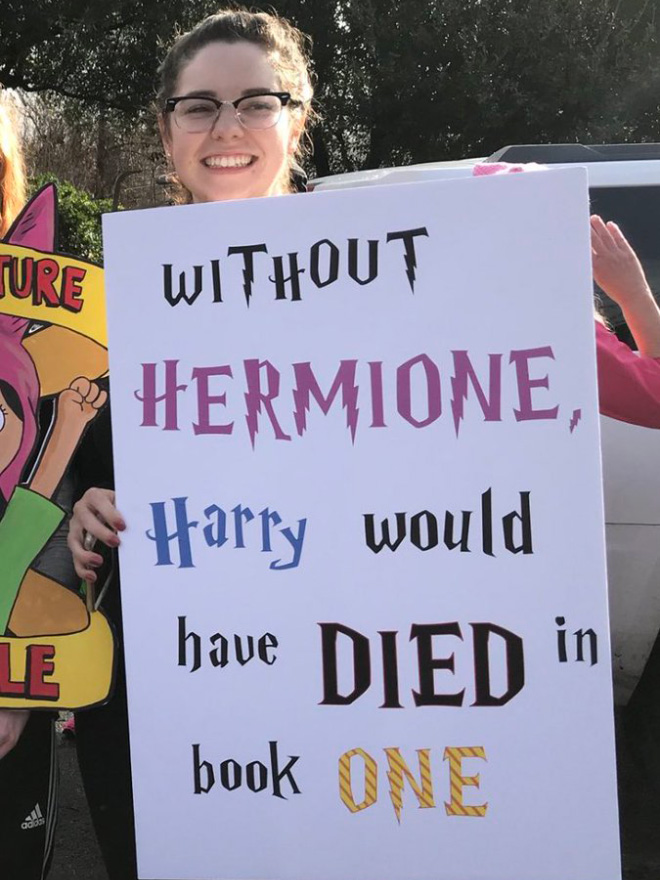 WITHOUT
HERMIONE,
Harry would
have DIED in
book ONE
TURE
LE
adidas